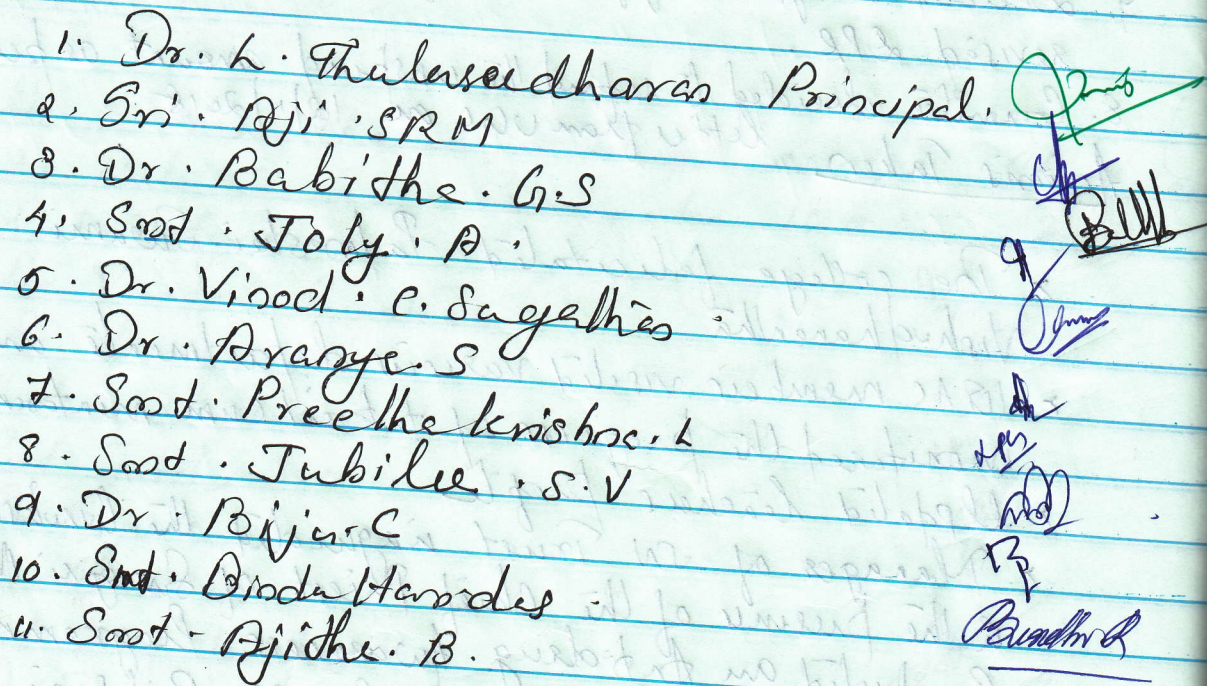 1. Dr. L. Thulaseedharan Principal.
2. Sri. Aji. SRM
3. Dr. Babitha. G.S
4. Smt. Joly. A.
5. Dr. Vinod. C. Sugathan.
6. Dr. Aranya. S
7. Smt. Preetha krishna. L
8. Smt. Jubilee. S.V
9. Dr. Biju. C
10. Smt. Bindu Haridas.
11. Smt - Ajitha. B.